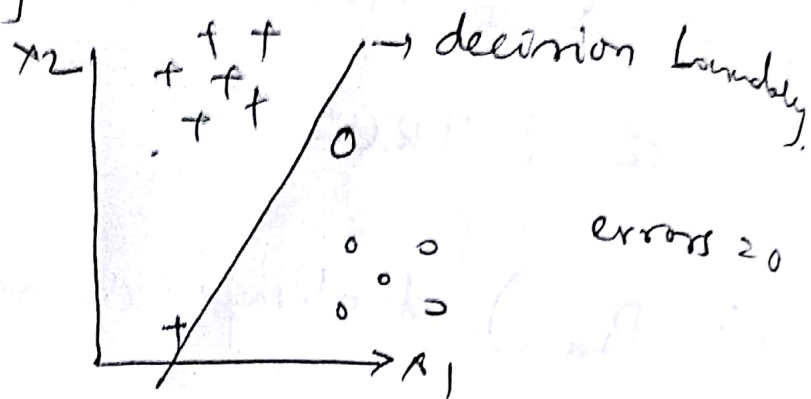 x2
→ decision boundary.
errors = 0
x1